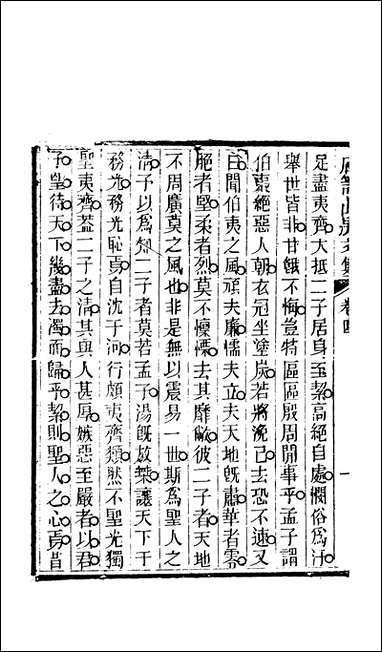 卷四
足盡夷齊大抵二子居身至絜高絕自處櫩俗爲汙
舉世皆非甘餓不悔豈特區區殷周閒事乎孟子謂
伯夷絕惡人朝衣冠坐塗炭若將浼己去恐不速又
曰聞伯夷之風頑夫廉懦夫立夫天地旣肅華者零
脆者堅柔者烈莫不懍慄去其靡歊彼二子者天地
不周廣莫之風也非是無以震易一世斯爲聖人之
淸予以爲類二子者莫若孟子湯旣放桀讓天下于
務光務光恥焉自沈于河行頗夷齊類然不聖光獨
聖夷齊葢二子之淸其與人甚厚嫉惡至嚴者以君
子皇待天下幾盡去濁而歸乎絜則聖人之心焉昔